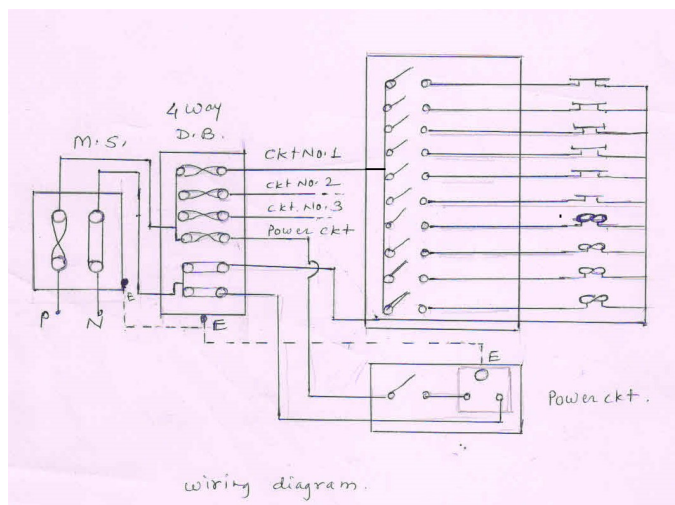 4 Way
D.B.
M.S.
Ckt No.1
ckt No. 2
ckt. No. 3
Power ckt
E
P
N
E
E
Power ckt.
wiring diagram.